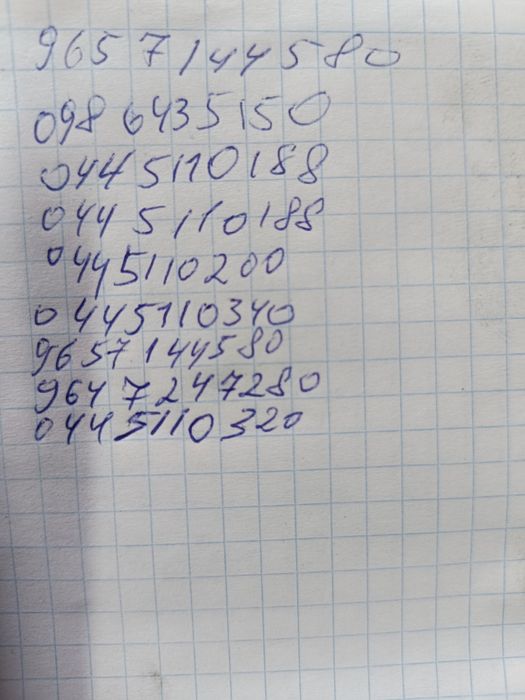 9657144580
0986435150
0445110188
0445110188
0445110200
0445110340
9657144580
9647247280
0445110320